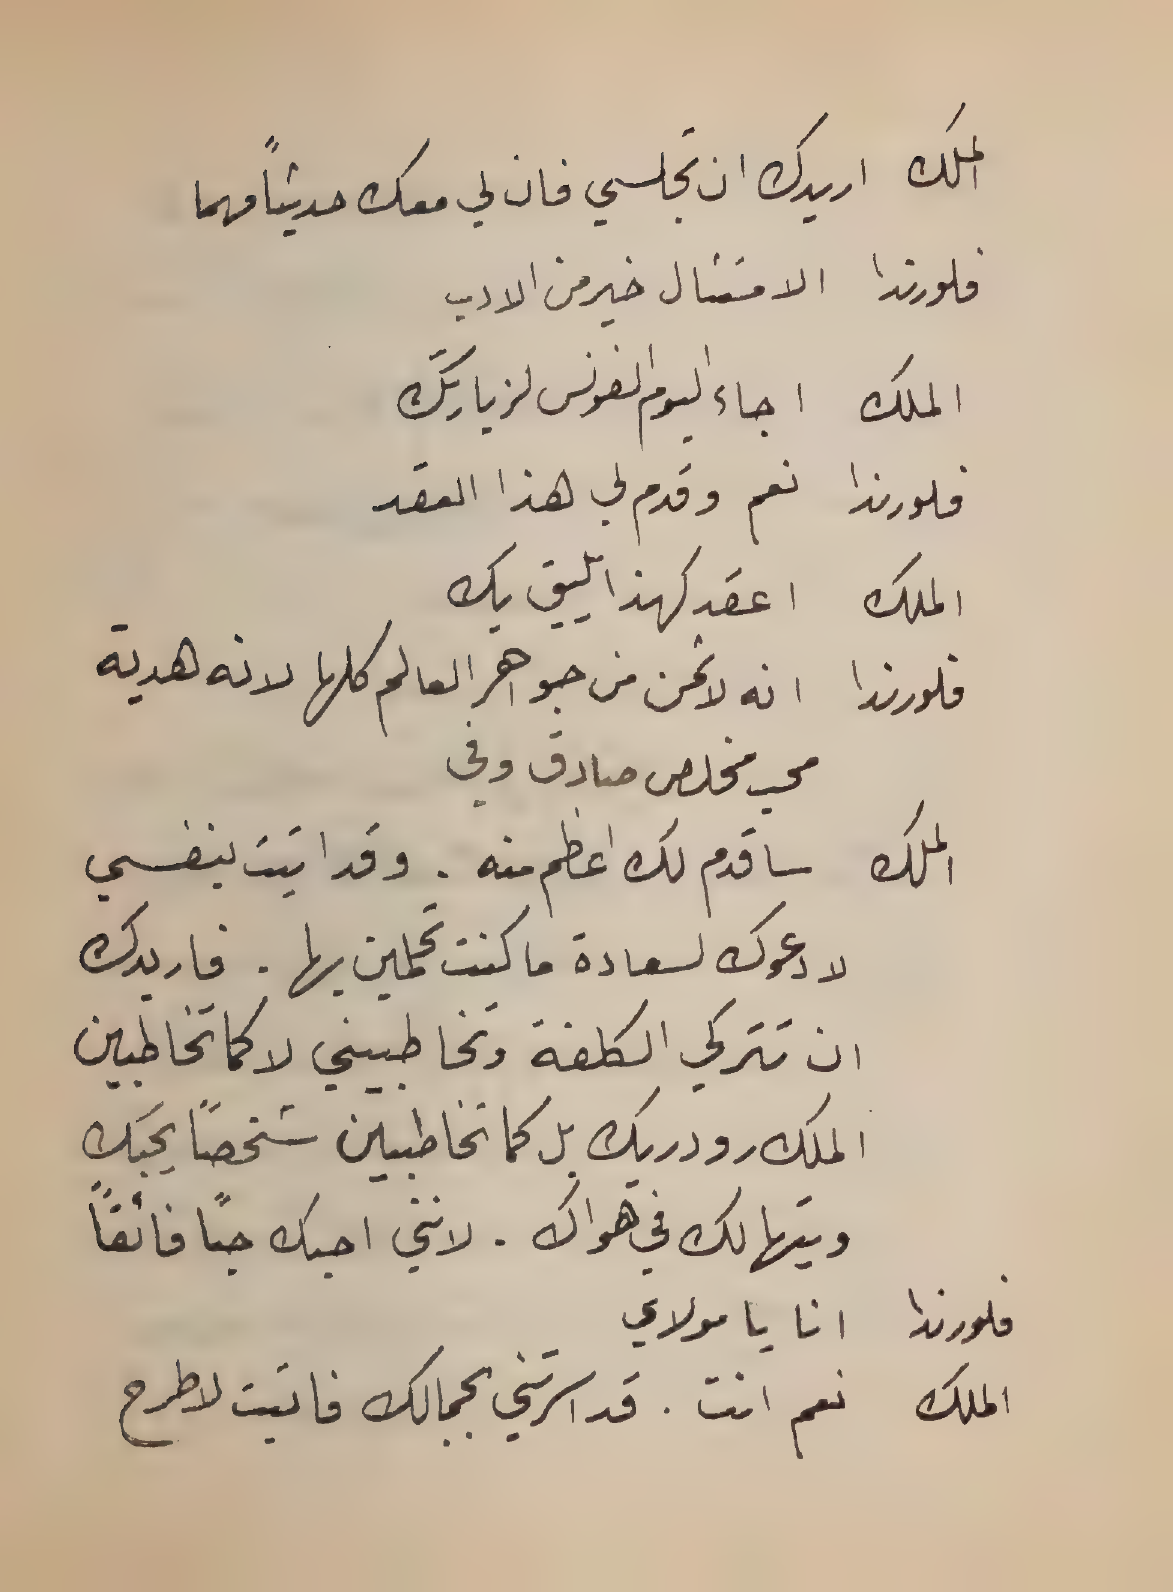 الملك اريدك ان تجلسي فان لي معك حديثاً مهما
فلورندا الامتثال خير من الادب
الملك اجاء اليوم الفونس لزيارتك
فلورندا نعم وقدم لي هذا العقد
الملك اعقد كهذا يليق بك
فلورندا انه لاثمن من جواهر العالم كلها لانه هدية
محب مخلص صادق وفي
الملك ساقدم لك اعظم منه . وقد اتيت بنفسي
لادعوك لسعادة ما كنت تحلمين بها . فاريدك
ان تتركي الكلفة وتخاطبيني لا كما تخاطبين
الملك رودريك بل كما تخاطبين شخصاً يحبك
ويتهالك في هواك . لانني احبك حبًا فائقاً
فلورندا انا يا مولاي
الملك نعم انت . قد اسرتني بجمالك فاتيت لاطرح